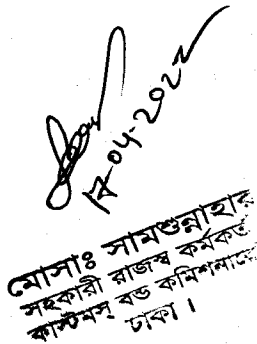 ১৭-০৪-২০২২
মোসাঃ সামশুন্নাহার
সহকারী রাজস্ব কর্মকর্তা
কাস্টমস্ বন্ড কমিশনারেট
ঢাকা।